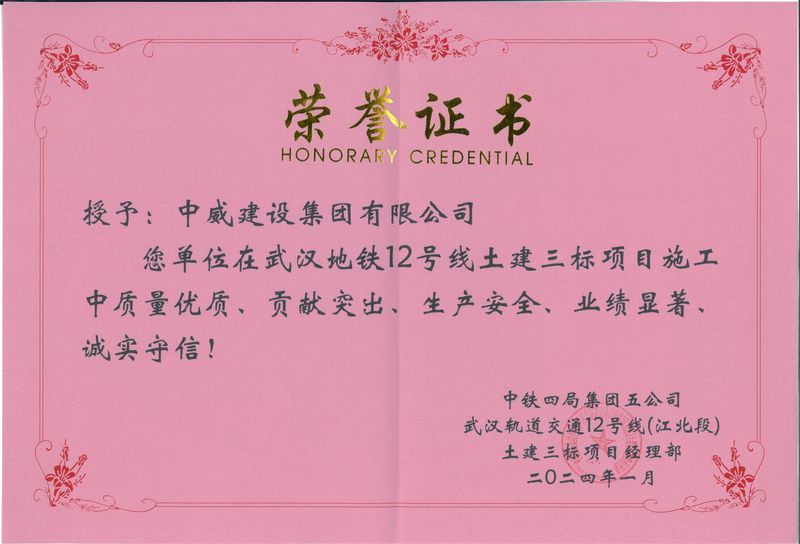 荣誉证书
HONORARY CREDENTIAL
授予：中威建设集团有限公司
您单位在武汉地铁12号线土建三标项目施工
中质量优质、贡献突出、生产安全、业绩显著、
诚实守信！
中铁四局集团五公司
武汉轨道交通12号线(江北段)
土建三标项目经理部
二〇二四年一月